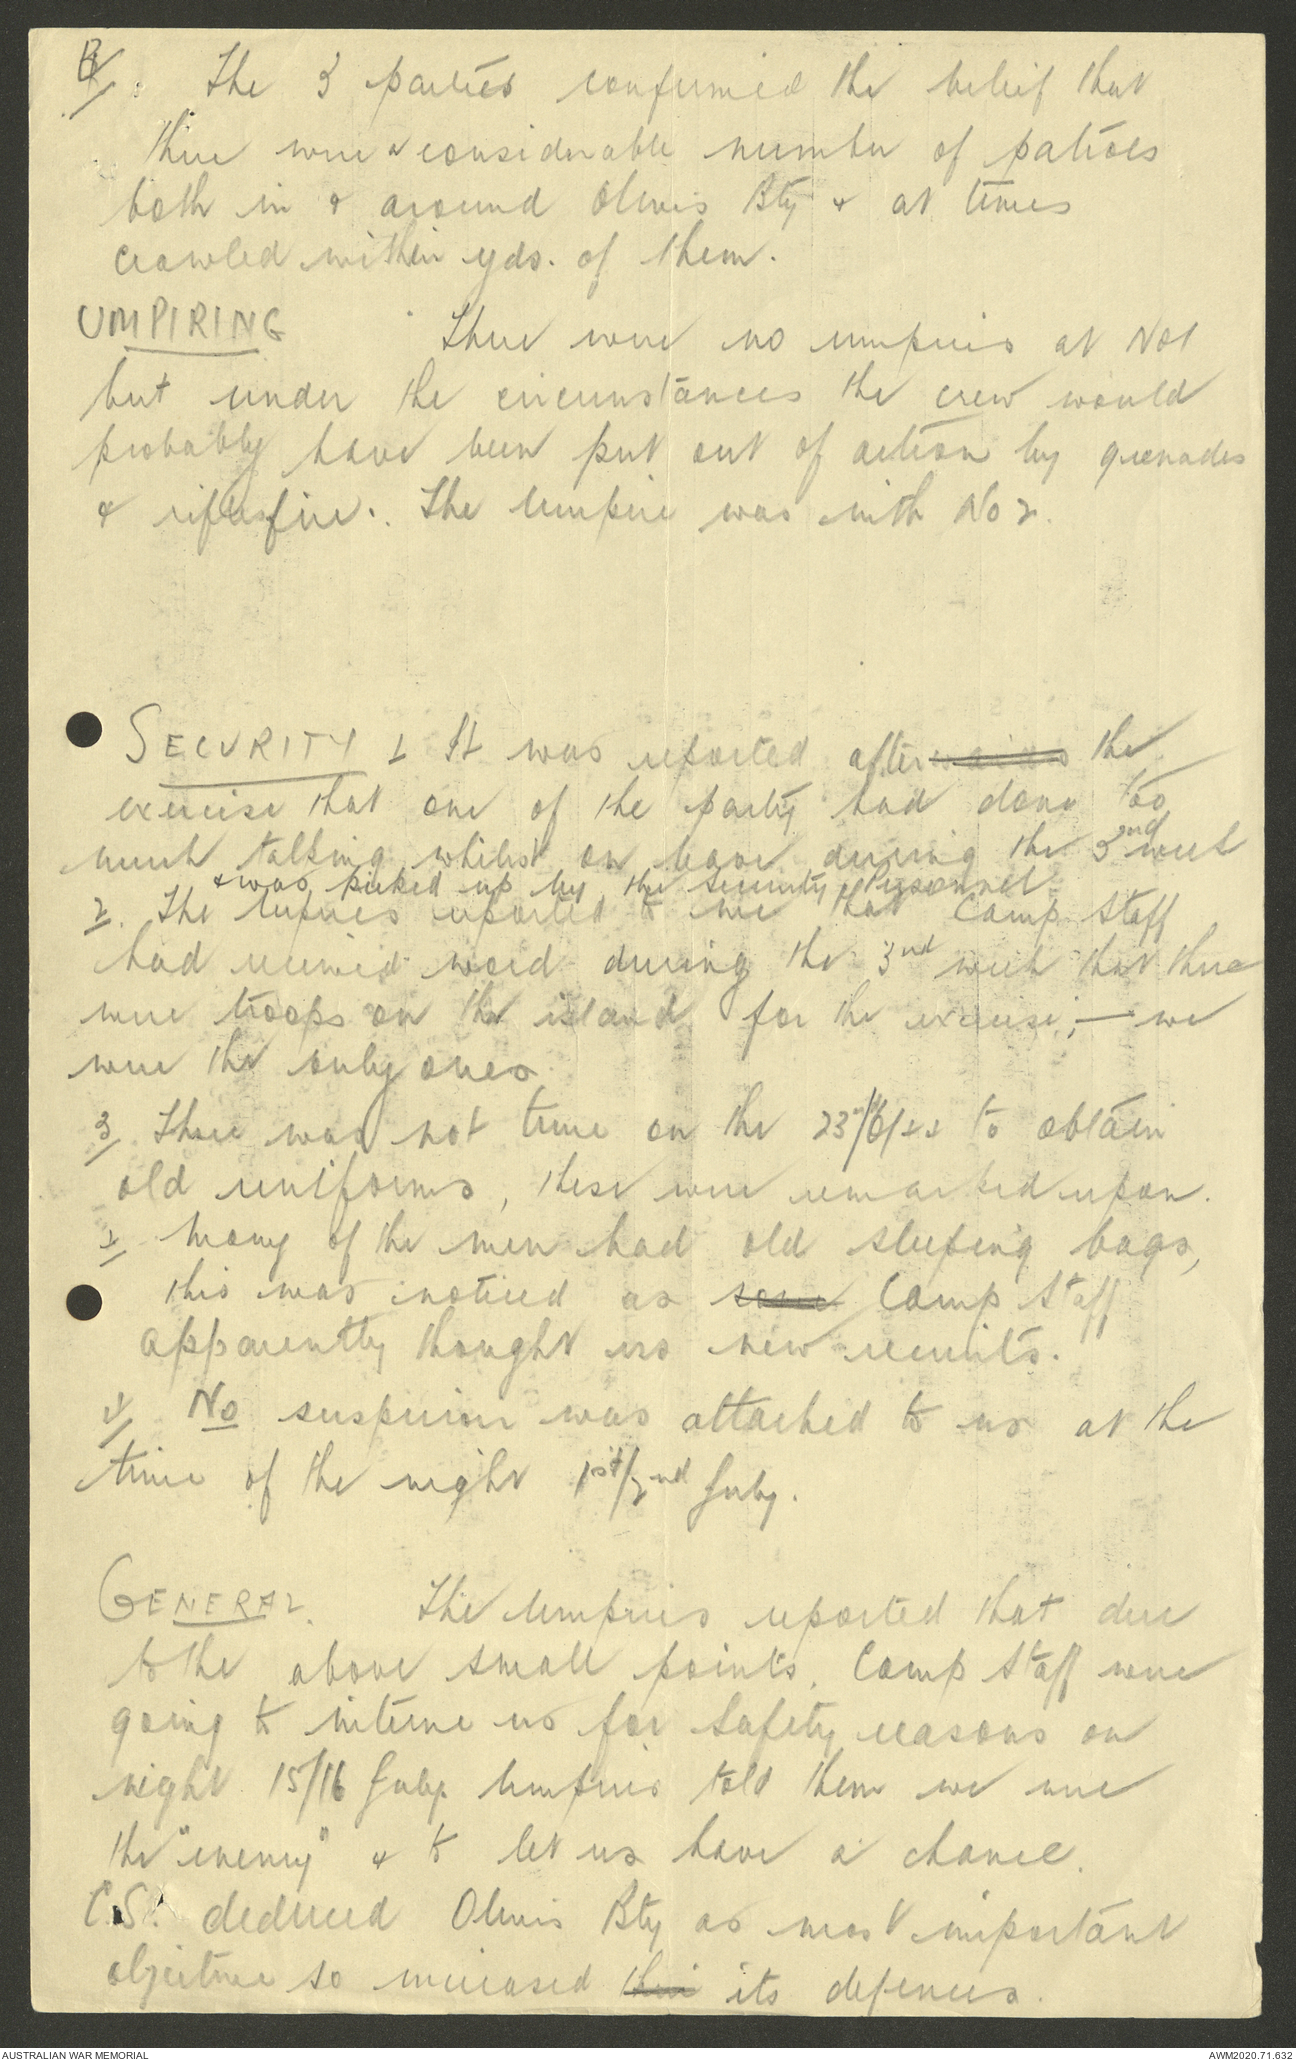 The 3 parties confirmed the belief that
there were a considerable number of patrols
both in & around Olivers Bty & at times
crawled within yds. of them.
UMPIRING There were no umpires at No1
but under the circumstances the crew would
probably have been put out of action by grenades
& rifle fire. The Umpire was with No 2.
SECURITY 1 It was reported after the
exercise that one of the party had done too
much talking whilst on leave during the 3nd week
& was picked up by the Security Personnel.
2. The Umpires reported to me that Camp Staff
had received word during the 3nd week that there
were troops on the island for the exercise; — we
were the only ones.
3/ There was not time on the 23rd/6/44 to obtain
old uniforms, these were remarked upon.
Many of the men had old sleeping bags,
this was noticed as some Camp Staff
apparently thought us new recruits.
4/ No suspicion was attached to us at the
time of the night 1st/2nd July.
GENERAL. The Umpires reported that due
to the above small points, Camp Staff were
going to interne us for Safety reasons on
night 15/16 July. Umpires told them we were
the "enemy" & to let us have a chance.
C.S. deduced Olivers Bty as most important
objective so increased their its defences.
AUSTRALIAN WAR MEMORIAL
AWM2020.71.632